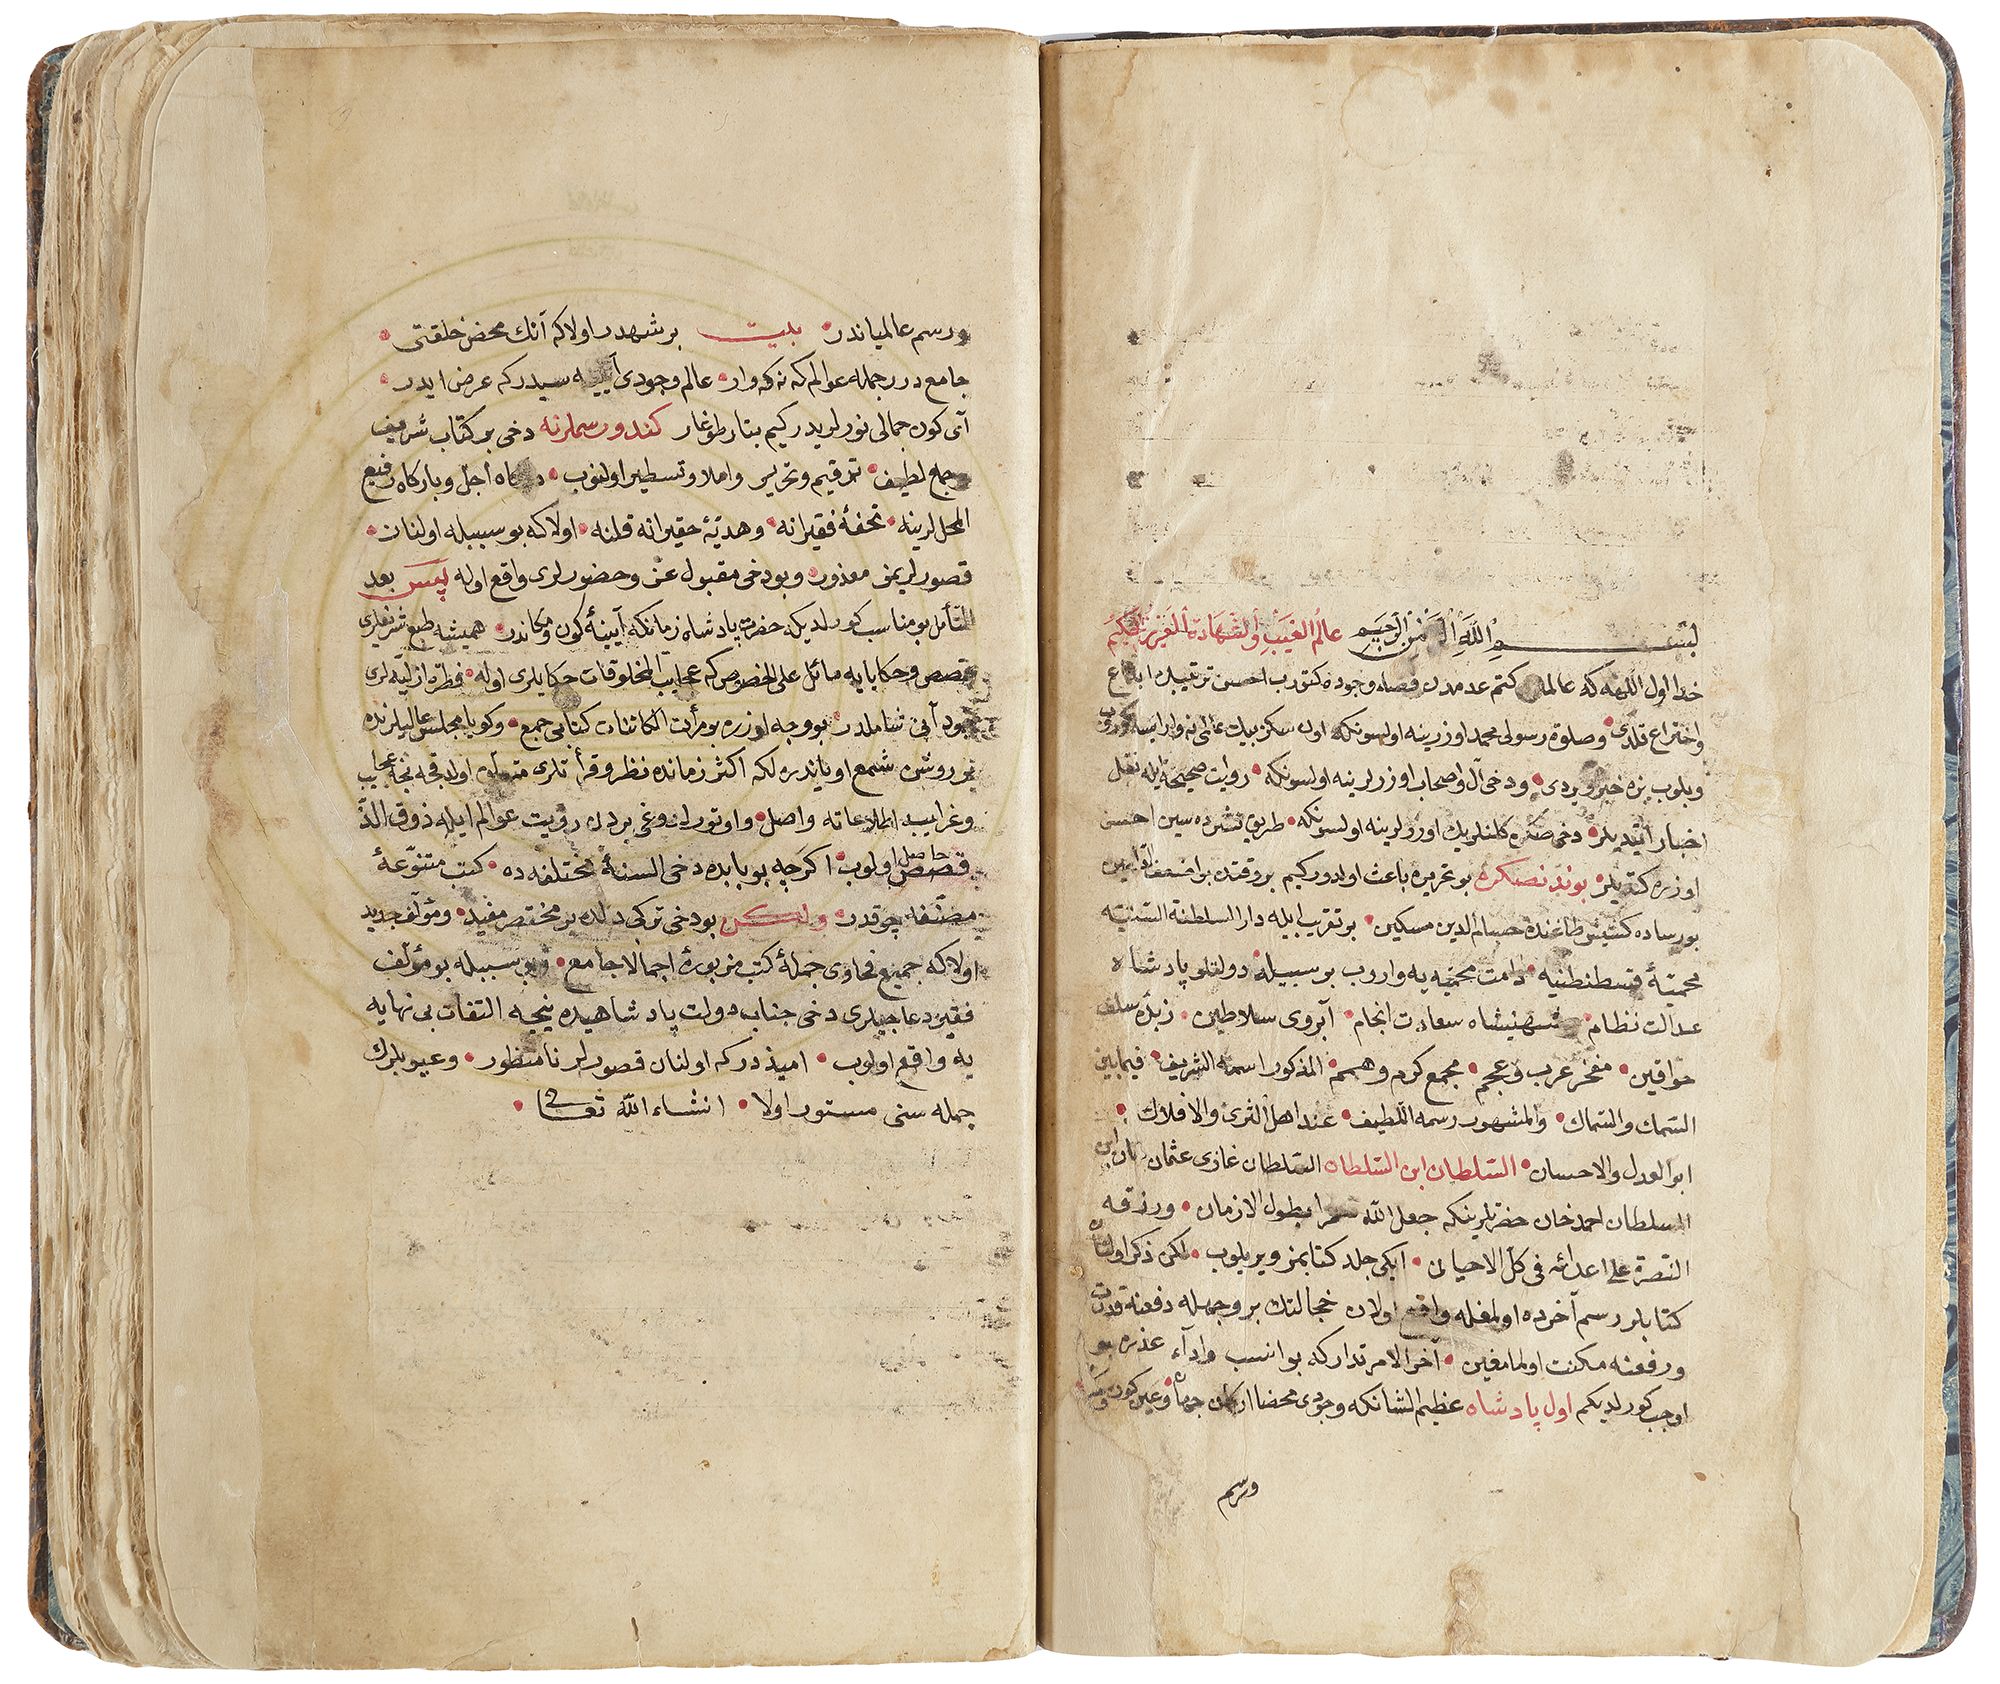 بسم الله الرحمن الرحيم عالم الغيب والشهادة العزيز الحكيم
حمد اول اللهه كه عالمى كتم عدمدن فضاء وجوده كتورب احسن ترتيبله ابداع
واختراع قلدى وصلوة رسولى محمد اوزرينه اولسونكه اون سكز بيك عالمى نه وار ايسه كوروب
وبلوب بزه خبر ويردى ودخى آل واصحاب اوزرلرينه اولسونكه روايت صحيحة ايله نقل
اخبار ايتديلر دخى صكره كلنلريك اوزرلرينه اولسونكه طريق نشرده سين احسن
اوزره كتديلر بوندنصكره بو تحريره باعث اولدوركيم بروقتده بو اضعف
بورساده حسام الدين مسكين بو تقريب ايله دار السلطنة السنيه
محمية قسطنطنيه دامت محميه يه واروب بر سببيله دولتلو پادشاه
عدالت نظام شهنشاه سعادت انجام آبروى سلاطين زبدۀ سلف
خواقين مفخر عرب وعجم مجمع كرم وهمم المذكور اسمه الشريف فيمابين
السمك والسماك والمشهور رسمه اللطيف عند اهل الثرى والافلاك
ابو العدل والاحسان السلطان ابن السلطان السلطان غازى عثمان خان ابن
السلطان احمد خان حضرتلرينكه جعل الله بطول الازمان ورزقه
النصرة على اعدائه فى كل الاحيان ايكى جلد كتابمز ويريلوب لكن ذكر اولنان
كتابلر رسم آخرده اولمغله واقع اولان خجالتك بر وجهله دفعنه قدرت
ورفعنه مكنت اولمامغين آخر الامر تداركه بو انسب واداء عذره بو
اوجب كورلديكم اول پادشاه عظيم الشانكه وجودى محضا اركان جهان وعين كون
ورسم
ورسم عالمياندر بيت بر شهدر اولاكه آنك محض خلقتى
جامعدر جمله عوالمكه نه كه وار عالم وجودى آيينه سيدركم عرض ايدر
آى كون جمالى نورلريدركيم بتار طوغار كندو رسملرنه دخى بر كتاب شريف
وجمع لطيف ترقيم وتحرير واملا وتسطير اولنوب دركاه اجل وباركاه رفيع
المحللرينه تحفۀ فقيرانه وهديۀ حقيرانه قلنه اولاكه بو سببيله اولنان
قصورلريمز معذور وبو دخى مقبول عز وحضورلرى واقع اوله پس بعد
التأمل بو مناسب كورلديكه حضرت پادشاه زمانكه آيينۀ كون ومكاندر هميشه طبع شريفلرى
قصص وحكاياته مائل على الخصوص كم عجايب المخلوقات حكايلرى اوله فطرة ازليه لرى
شاملدر بو وجه اوزره بو مرأت الكائنات كتابى جمع وكويا مجلس عاليلرنده
بر روشن شمع اوياندره لكه اكثر زمانده نظر وقرأتلرى متعلق اولدقجه نجه عجايب
وغرايب اطلاعاته واصل واوتورلدوغى يردن رؤيت عوالم ايله ذوق الذ
قصص حاصل اولوب اكرچه بو بابده دخى السنۀ مختلفه ده كتب متنوعۀ
مصنفه چوقدر ولكن بو دخى تركى دلده بر مختصر مفيد ومؤلف جديد
اولاكه جميع فحاوى جملۀ كتب مزبورۀ اجمالا جامع وبو سببيله بو مؤلف
فقير دعاجيلرى دخى جناب دولت پادشاهيده نيجه التفات بى نهايه
يه واقع اولوب اميددركه اولنان قصورلر نامنظور وعيوبلرك
جمله سنى مستور اولا انشاء الله تعالى